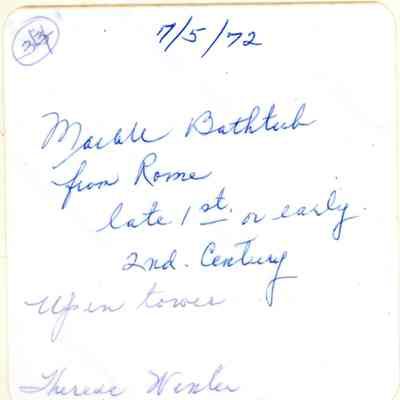 33
7/5/72
Marble Bathtub
from Rome
late 1st. or early
2nd. Century
Up in tower
Therese